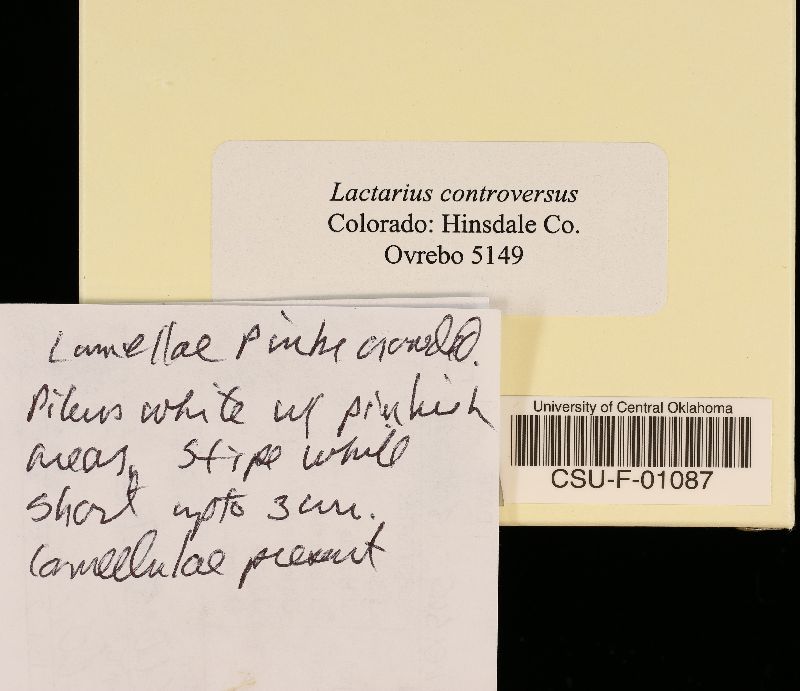 Lactarius controversus
Colorado: Hinsdale Co.
Ovrebo 5149
Lamellae pink crowded.
Pileus white w/ pinkish
areas, Stipe white
short up to 3 cm.
Lamellulae present
University of Central Oklahoma
CSU-F-01087